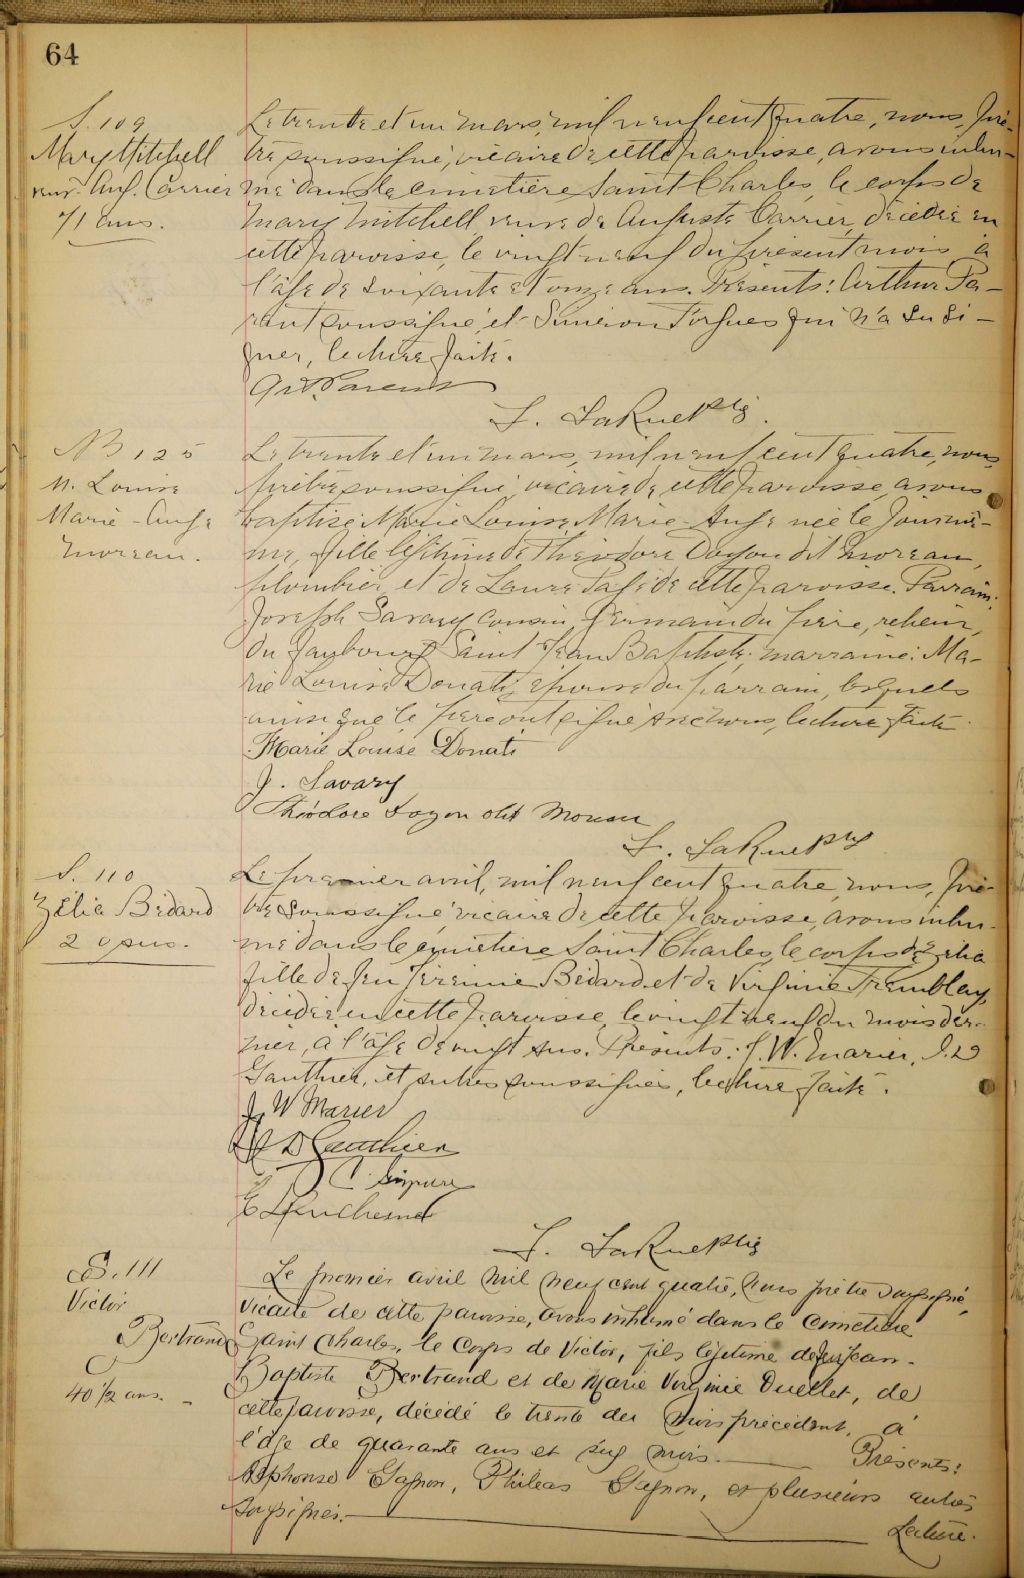 64
S. 109
Mary Mitchell
veuv. Aug. Carrier
71 ans.
Le trente et un mars, mil neuf cent quatre, nous, prê-
tre soussigné, vicaire de cette paroisse, avons inhu-
mé dans le cimetière Saint Charles, le corps de
Mary Mitchell, veuve de Auguste Carrier, décédée en
cette paroisse, le vingt neuf du présent mois à
l'âge de soixante et onze ans. Présents: Arthur Pa-
rent soussigné, et Siméon Turgeon qui n'a su si-
gner, lecture faite.
Art. Parent
L. LaRue ptre.
B 125
M. Louise
Marie-Ange
Moreau.
Le trente et un mars, mil neuf cent quatre, nous,
prêtre soussigné, vicaire de cette paroisse, avons
baptisé Marie Louise, Marie-Ange née le jour mê-
me, fille légitime de Théodore Dogon dit Moreau,
plombier, et de Laure de cette paroisse. Parrain:
Joseph Savary cousin germain du père, relieur,
du faubourg Saint Jean Baptiste; marraine: Ma-
rie Louise Donati, épouse du parrain, lesquels
ainsi que le père ont signé avec nous, lecture faite.
Marie Louise Donati
J. Savary
Théodore Dogon dit Moreau
L. LaRue ptre
S. 110
Zélia Bédard
20 ans.
Le premier avril, mil neuf cent quatre, nous, prê-
tre soussigné, vicaire de cette paroisse, avons inhu-
mé dans le cimetière Saint Charles, le corps de Zélia
fille de feu Jérémie Bédard et de Virginie Tremblay,
décédée en cette paroisse, le vingt neuf du mois der-
nier, à l'âge de vingt ans. Présents: J. W. Marier, J. D
Gauthier, et autres soussignés, lecture faite.
J W Marier
J D Gauthier
C.
E Duchesne
L. LaRue ptre
S. 111
Victor
Bertrand
40 1/2 ans.
Le premier avril mil neuf cent quatre, nous prêtre soussigné,
vicaire de cette paroisse, avons inhumé dans le cimetière
Saint Charles, le corps de Victor, fils légitime de feu Jean-
Baptiste Bertrand et de Marie Virginie Ouellet, de
cette paroisse, décédé le trente du mois précédent, à
l'âge de quarante ans et six mois. Présents:
Alphonse Gagnon, Philéas Gagnon, et plusieurs autres
soussignés.
Lecture.